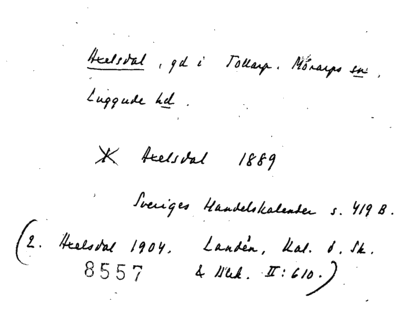 Axelsdal, gd i Tollarp. Mörarps sn.
Luggude hd.
Axelsdal 1889
Sveriges Handelskalender s. 419 B.
(2. Axelsdal 1904. Landén, Kal. ö. Sk.
8557 & Blek. II: 610.)